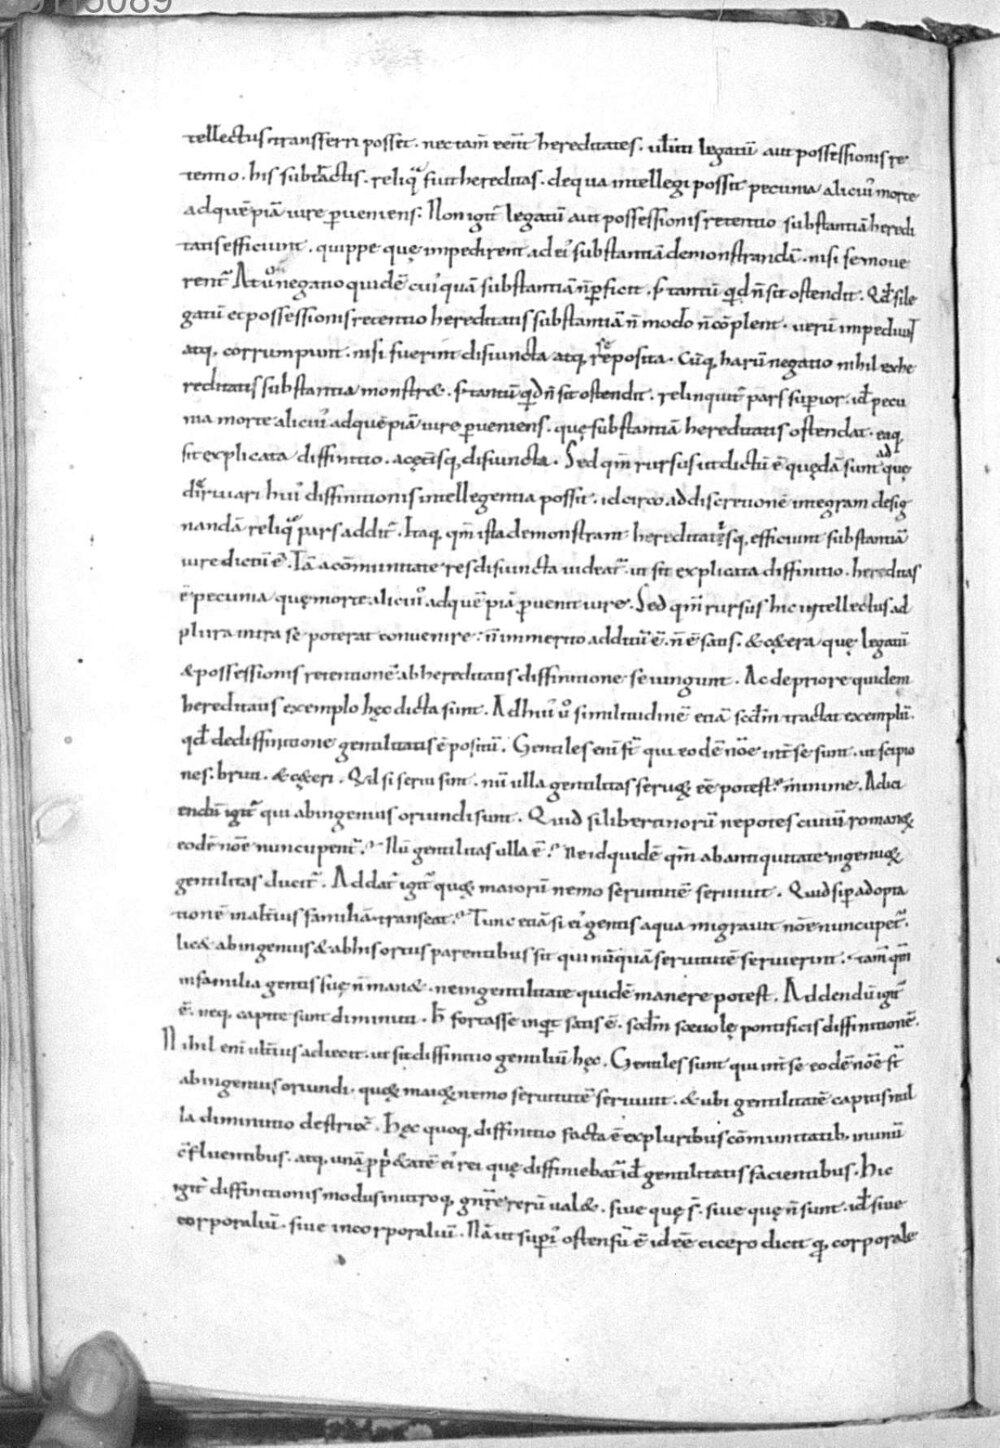 tellectus transferri posset. nec tam̄ eēnt hereditates. uł uti legatū aut possessionis re
tentio. his subtractis. reliqua fiat hereditas. de qua intellegi possit pecunia alicui' morte
ad quēpiā iure perueniens. Non igit̄ legatū aut possessionis retentio substantiā heredi
tatis efficiunt. quippe quę impedirent ad ei' substantiā demonstrandā. nisi semoue
rent̄. At ů negatio quidē cui'quā substantiā n̄ perficit. s; tantū qđ n̄ sit ostendit. Qđ si le
gatū et possessionis retentio hereditatis substantiā n̄ modo n̄ cōplent. uerū impediunt
atq. corrumpunt. nisi fuerint disiuncta atq. seposita. Cūq. harū negatio nihil ex he
reditatis substantia monstr&. s; tantū qđ n̄ sit ostendit. relinquit̄ pars superior. id ÷ pecu
nia morte alicui' ad quēpiā iure perueniens. quę substantiā hereditatis ostendat. eaq.
sit explicata diffinitio. a cęterisq. disiuncta. Sed qm̄ rursus ut dictū ē quędā sunt ad quę
diriuari hui' diffinitionis intellegentia possit. idcirco ad discretionē integram desig
nandā reliqua pars addit̄. Itaq. qm̄ ista demonstrant hereditatēsq. efficiunt substantiā
iure dictū ē. Iā a cōmunitate res disiuncta uideat̄. ut sit explicata diffinitio. hereditas
ē pecunia quę morte alicui' ad quēpiā peruenit iure. Sed qm̄ rursus hic intellectus ad
plura intra se poterat conuenire. n̄ inmerito additū ē. n̄ ē satis. & cętera quę legatū
& possessionis retentionē ab hereditatis diffinitione seiungunt. Ac de priore quidem
hereditatis exemplo hęc dicta sunt. Ad hui' ů similitudinē etiā scdm̄ tractat exemplū.
qđ de diffinitione gentilitatis ē positū. Gentiles eni' st̄ qui eodē nōe int̄ se sunt. ut scipio
nes. bruti. & cęteri. Qđ si serui sint. nū ulla gentilitas seruoꝝ eē potest? minime. Adici
endū igit̄ qui ab ingenuis oriundi sunt. Quid si libertinorū nepotes ciuiū romanoꝝ
eodē nōe nuncupent̄? Nū gentilitas ulla ē? Ne id quidē qm̄ ab antiquitate ingenuoꝝ
gentilitas ducit̄. Addat̄ igit̄ quoꝝ maiorū nemo seruitutē seruiuit. Quid si per adopta
tionē in alt̄ius familiā transeat? Tunc etiā si ei' gentis a qua migrauit nōe nuncupet̄.
lic& ab ingenuis & ab his ortus parentibus sit qui nūquā seruitutē seruierint. tam̄ qm̄
in familia gentis suę n̄ man&. ne in gentilitate quidē manere potest. Addendū igit̄
ē. neq. capite sunt diminuti. h̄ fortasse inquit satis ē. scdm̄ scęuolę pontificis diffinitionē.
Nihil eni' ult̄ius adiecit. ut sit diffinitio gentiliū hęc. Gentiles sunt qui int̄ se eodē nōe st̄
ab ingenuis oriundi. quoꝝ maioꝝ nemo seruitutē seruiuit. & ubi gentilitatē capitis nul
la diminutio destrict̄. Hęc quoq. diffinitio facta ē ex pluribus cōmunitatib. in unū
cfluentibus. atq. unā ppriętatē ei' rei quę diffiniebat̄ id ÷ gentilitatis facientibus. Hic
igit̄ diffinitionis modus in utroq. gn̄re rerū ual&. siue quę st̄. siue quę n̄ sunt. id ÷ siue
corporaliū. siue incorporaliū. Nā ut superi' ostensū ē id eē cicero dicit qđ corporale